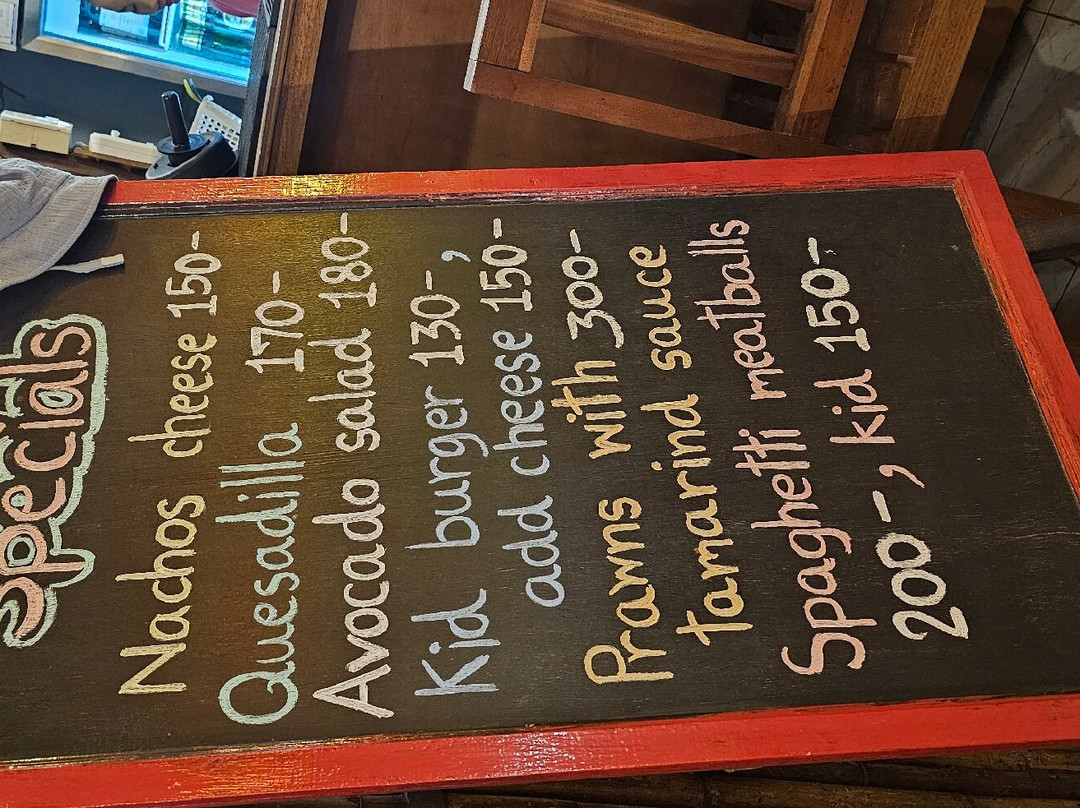 Specials
Nachos cheese 150-
Quesadilla 170-
Avocado salad 180-
Kid burger 130-,
add cheese 150-
Prawns with 300-
tamarind sauce
Spaghetti meatballs
200-, kid 150-